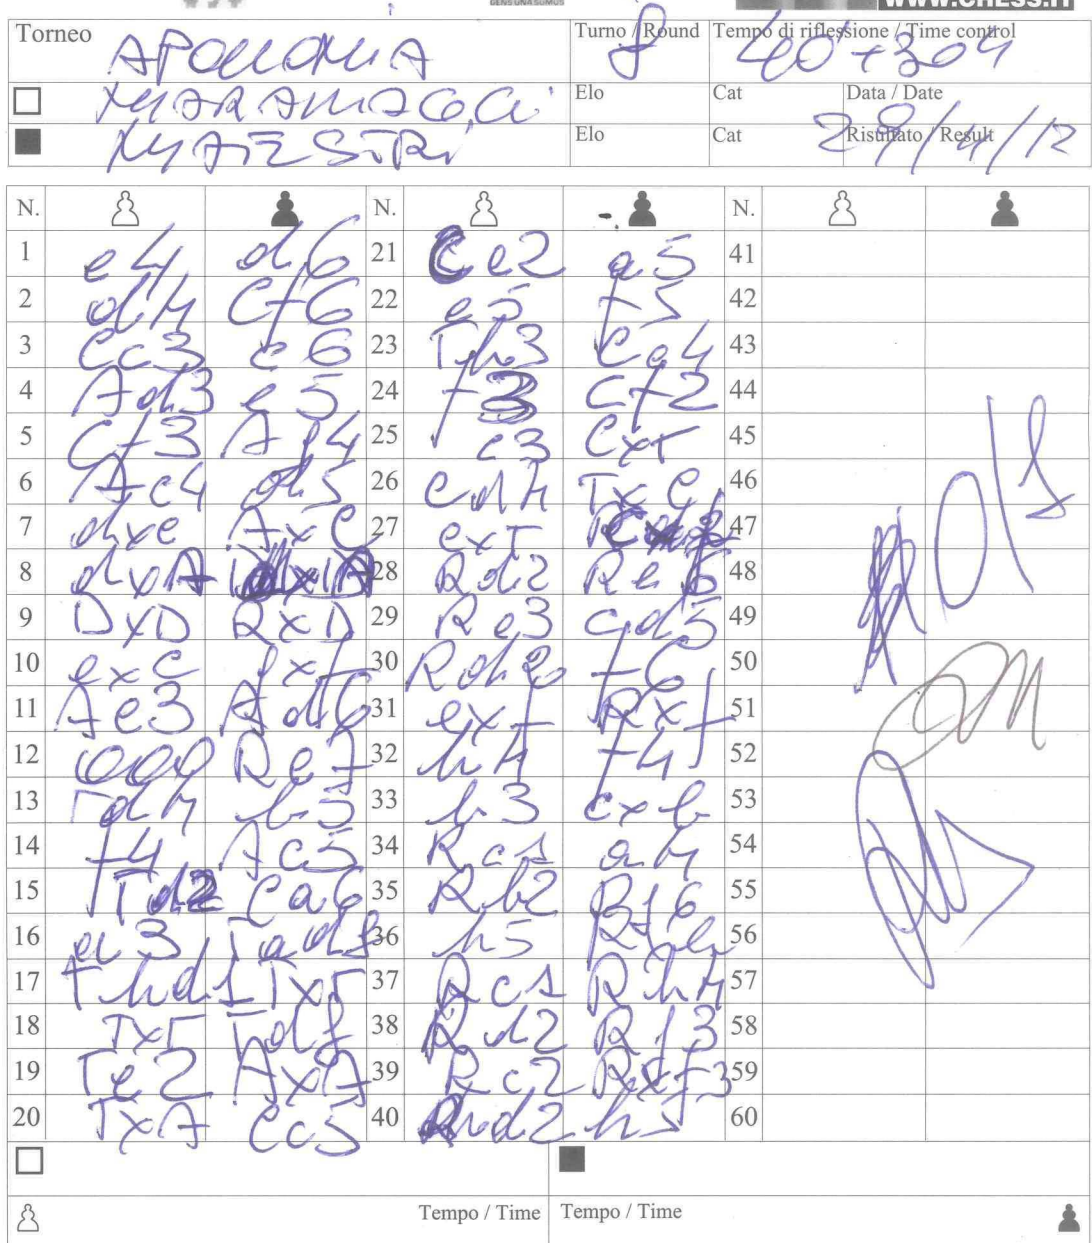 GENS UNA SUMUS WWW.CHESS.IT
Torneo Turno / Round 8 Tempo di riflessione / Time control
Elo Cat Data / Date
MAESTRI Elo Cat Risultato / Result 29/4/12
N. N. N.
1 e4 d6 21 Ce2 a5 41
2 d4 Cf6 22 e5 f5 42
3 Cc3 c6 23 Th3 Ce4 43
4 Ad3 e5 24 f3 Cf2 44
5 Cf3 Ag4 25 c3 CxT 45
6 Ac4 d5 26 Cd4 TxC 46
7 dxe AxC 27 cxT 47
8 dxA 28 Rd2 Re6 48
9 DxD RxD 29 Re3 Cd5 49
10 exC gxf 30 f6 50
11 Ae3 Ad6 31 exf Rxf 51
12 000 Re7 32 h4 f4 52
13 Td4 b5 33 b3 cxb 53
14 f4 Ac5 34 Rc1 a4 54
15 Td2 Ca6 35 Rb2 Rf6 55
16 a3 Tad8 36 h5 56
17 Thd1 TxT 37 Rc1 Rh4 57
18 TxT Td8 38 Rd2 Rg3 58
19 Te2 AxA 39 Rc2 Rxf3 59
20 TxA Cc5 40 Rd2 h5 60
Tempo / Time Tempo / Time